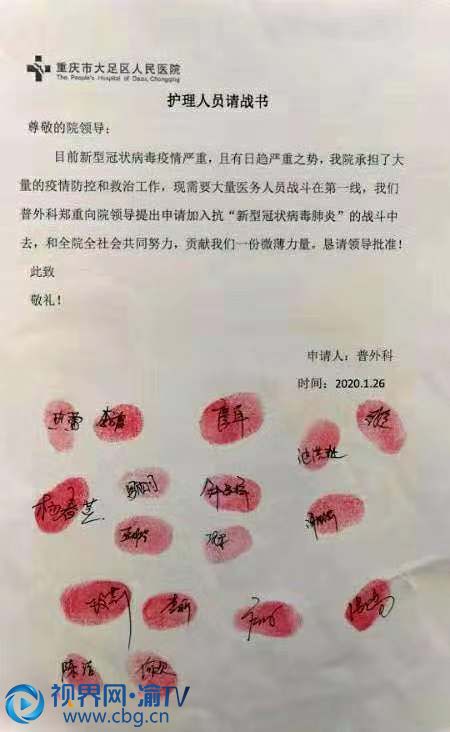 重庆市大足区人民医院
The People's Hospital of Dazu, Chongqing
护理人员请战书
尊敬的院领导:
目前新型冠状病毒疫情严重，且有日趋严重之势，我院承担了大
量的疫情防控和救治工作，现需要大量医务人员战斗在第一线，我们
普外科郑重向院领导提出申请加入抗“新型冠状病毒肺炎”的战斗中
去，和全院全社会共同努力，贡献我们一份微薄力量，恳请领导批准！
此致
敬礼！
申请人：普外科
时间：2020.1.26
杨春芝
视界网·渝TV
www.cbg.cn